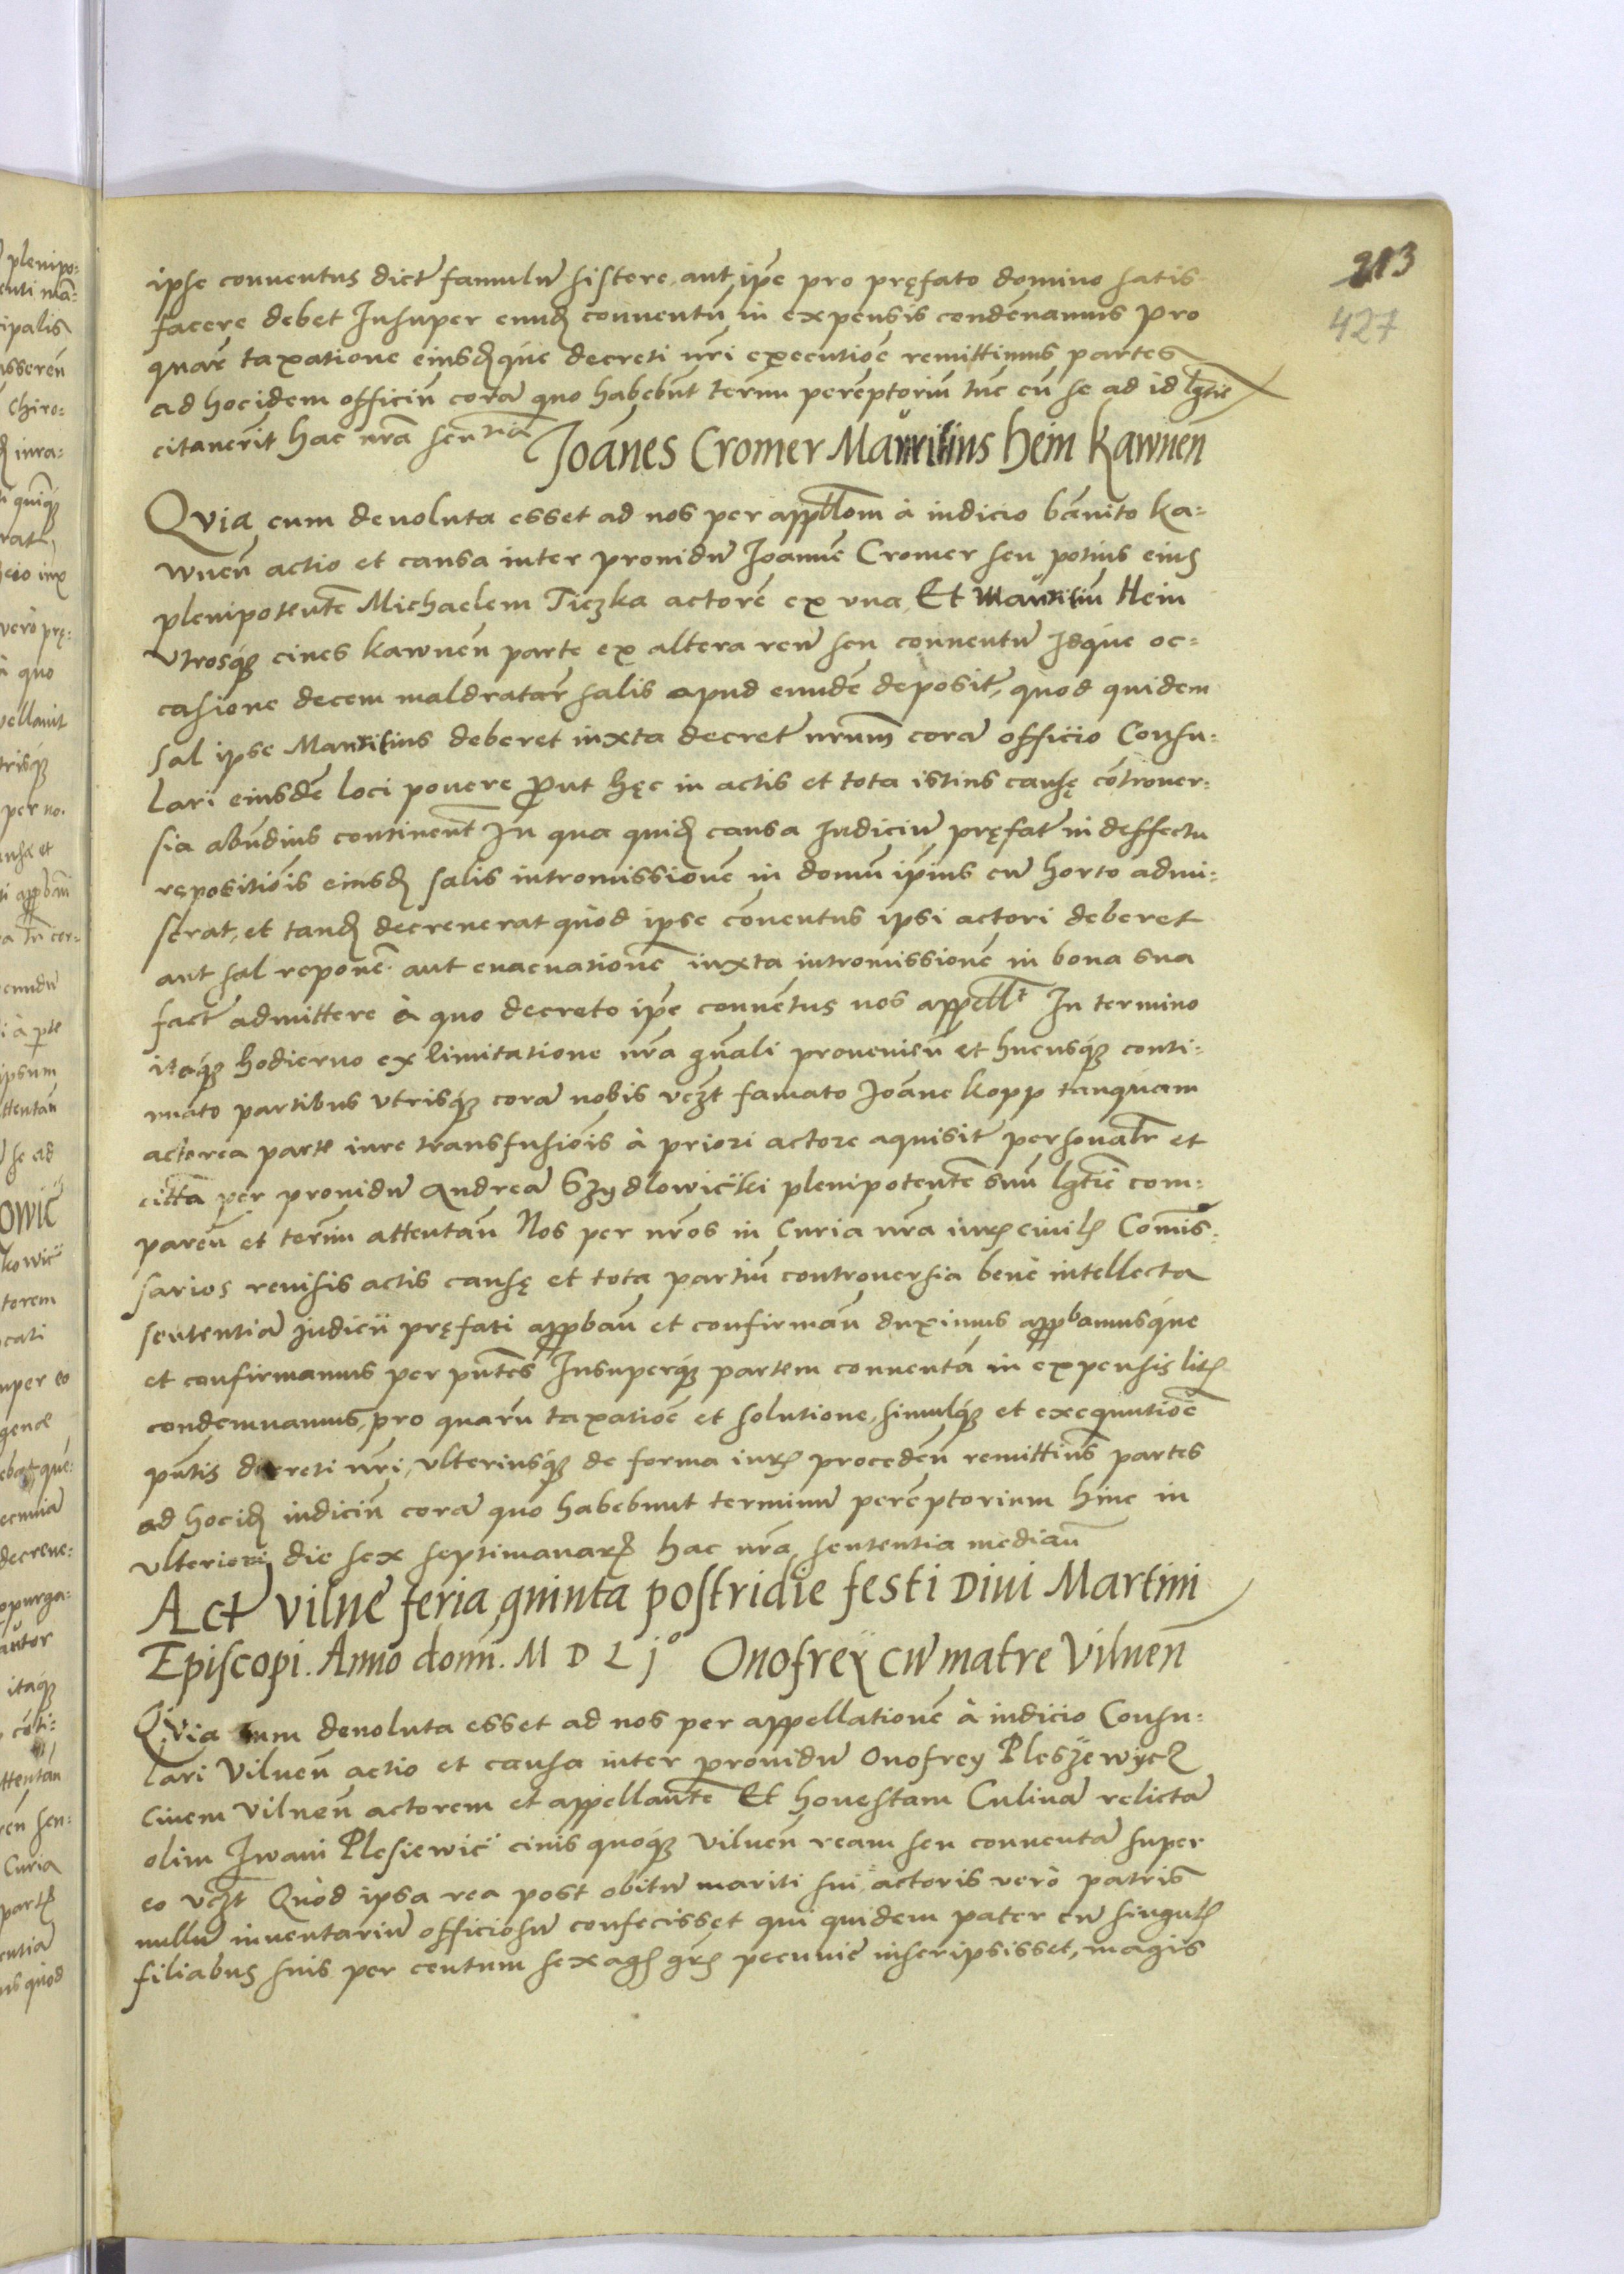 213
427
ipse conuentus dict̃ famulũ sistere, aut ip̃e pro pręfato domino satis
facere debet Insuper eund̃ conuentũ in expensis condẽnamus Pro
quar̃ taxatione eiusd̃que decreti nr̃i executiõe remittimus partes
ad hocidem officiũ corã quo habebũt term̃ perẽptoriũ tũc cũ se ad id lgt̃ie
citauerit hac nr̃a senñtia
Joãnes Cromer Mauritius Hein Kawneñ
Qvia cum deuoluta esset ad nos per appllõm à iudicio bãnito Ka-
wneñ actio et causa inter prouidũ Joannẽ Cromer seu potius eius
plenipotentẽ Michaelem Ticzka actorẽ ex vna, Et Mauritiũ Hein
vtrosq́ue ciues kawneñ parte ex altera reũ seu conuentũ Idq́ue oc-
casione decem maldratar̃ salis apud eundẽ deposit̃, quod quidem
sal ipse Mauritius deberet iuxta decret̃ nrum̃ corã officio Consu-
lari eiusdẽ loci ponere Prout hęc in actis et tota istius causę cõtrouer-
sia abũdius continent̃ In qua quid̃ causa Iudiciũ pręfat̃ in deffectu
repositiõis eiusd̃ salis intromissionẽ in domũ ip̃ius cũ horto admi-
serat, et tand̃ decreuerat quòd ipse cõuentus ipsi actori deberet
aut sal reponẽ aut euacuationẽ iuxta intromissionẽ in bona sua
fact̃ admittere à quo decreto ip̃e conuẽtus nos appellt̃ In termino
itaq́ue hodierno ex limitatione nr̃a gñali proueniẽn et hucusq́ue conti-
nuato partibus vtrisq́ue corã nobis vczt̃ famato Joãne Kopp tanquam
actorea parte iure transfusiõis à priori actore aquisit̃ personalr̃ et
citt̃a per prouidũ Andreã Szydlowič̈ki plenipotentẽ suũ lgt̃ie com-
pareñ et term̃ attentañ Nos per nr̃os in Curia nr̃a iur̃ ciuil̃ Com̃is-
sarios reuisis actis causę et tota partiũ controuersia benè intellecta
sententiã iudicii pręfati approbañ et confirmañ duximus approbamusq́ue
et confirmamus per pñtes Insuperq́ue partem conuentã in expensis lit̃
condemnamus, pro quarũ taxatiõe et solutione, simulq́ue et exequutiõe
pñtis decreti nr̃i, vlteriusq́ue de forma iur̃ procedeñ remittim̃s partes
ad hocid̃ iudiciũ corã quo habebunt terminũ perẽptorium hinc in
vlteriori die sex septimanar̃ hac nr̃a sententia mediañ
Act̃ Vilnẽ feria quinta postridie festi Diui Martini
Episcopi. Anno doñi. M D L jº Onofreÿ cũ matre Vilneñ
Qvia cum deuoluta esset ad nos per appellationẽ à iudicio Consu-
lari Vilneñ actio et causa inter prouidũ Onofrey Pleszewycz
Ciuem Vilneñ actorem et appellantẽ Et honestam Culinã relictã
olim Iwani Plesiewič̈ ciuis quoq́ue Vilneñ ream seu conuentã super
eo vczt̃ Quòd ipsa rea post obitũ mariti sui actoris verò patris
nullũ inuentariũ officiosũ confecisset qui quidem pater cũ singul̃
filiabus suis per centum sexag̃ gr̃ pecunię inscripsisset, magis